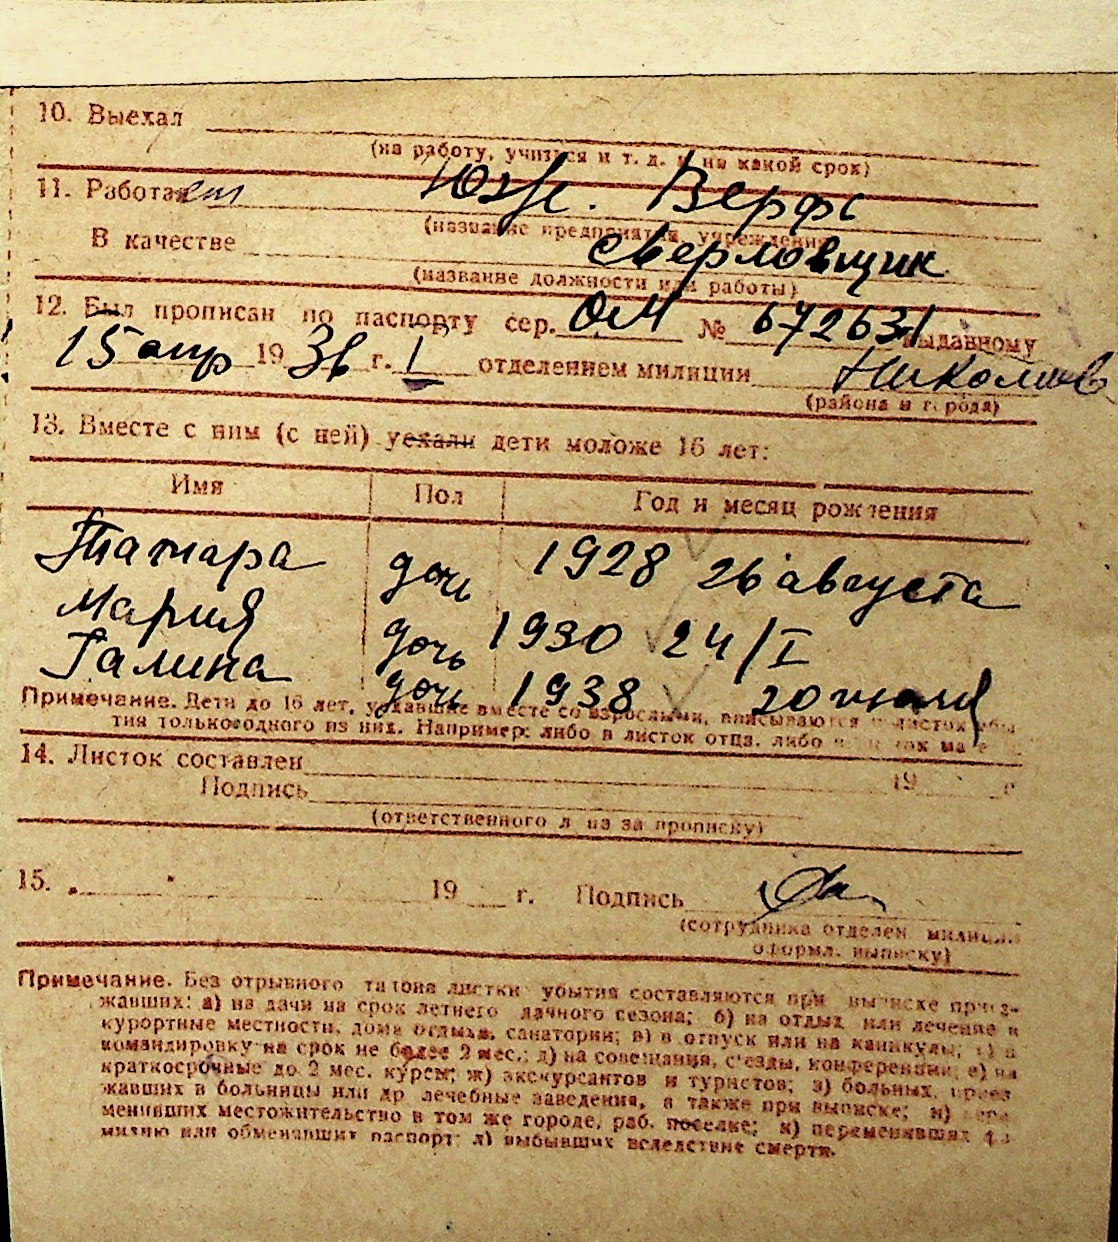 10. Выехал
(на работу, учиться и т. д. и на какой срок)
11. Работает Юж. Верфь
(название предприятия, учреждения)
В качестве сверловщик
(название должности или работы)
12. Был прописан по паспорту сер. ОМ № 672631 выданному
15 апр 1936 г. 1 отделением милиции Николаев
(района и города)
13. Вместе с ним (с ней) уехали дети моложе 16 лет:
Имя Пол Год и месяц рождения
Тамара дочь 1928 26 августа
Мария дочь 1930 24/I
Галина дочь 1938 20 июля
Примечание. Дети до 16 лет, уехавшие вместе со взрослыми, вписываются в листок убы
тия только одного из них. Например: либо в листок отца, либо
14. Листок составлен 19 г
Подпись
(ответственного л из за прописку)
15. 19 г. Подпись
(сотрудника отделен. милиции
оформл. выписку)
Примечание. Без отрывного талона листки убытия составляются при выписке приез-
жавших: а) на дачи на срок летнего дачного сезона; б) на отдых или лечение в
курортные местности, дома отдыха, санатории; в) в отпуск или на каникулы; г) в
командировку на срок не более 2 мес.; д) на совещания, съезды, конференции; е) на
краткосрочные до 2 мес. курсы; ж) экскурсантов и туристов; з) больных, приез
жавших в больницы или др лечебные заведения, а также при выписке; и) пере
менивших местожительство в том же городе, раб. поселке; к) переменивших фа
милию или обменявших паспорт; л) выбывших вследствие смерти.